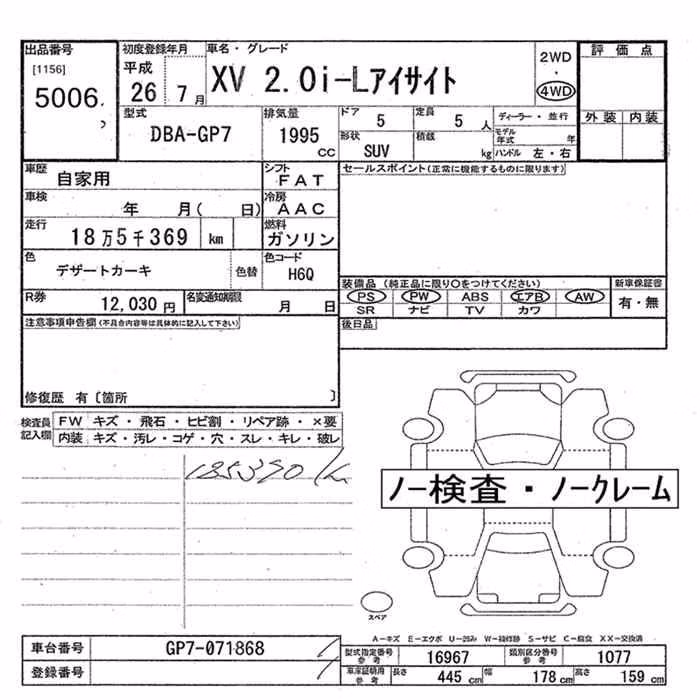 出品番号
[1156]
5006
初度登録年月
平成
26 7月
車名・グレード
XV 2.0i-Lアイサイト
2WD
・
4WD
評価点
外装 内装
型式
DBA-GP7
排気量
1995
cc
ドア
5
定員
5 人
ディーラー・並行
形状
SUV
積載
kg
モデル年式 年
ハンドル 左・右
車歴
自家用
シフト
FAT
セールスポイント(正常に機能するものに限ります)
車検
年 月( 日)
冷房
AAC
走行
18万5千369 km
燃料
ガソリン
色
デザートカーキ
色替
色コード
H6Q
装備品(純正品に限り○をつけてください)
新車保証書
PS PW ABS エアB AW
有・無
SR ナビ TV カワ
R券
12,030円
名変通知期限
月 日
後日品
注意事項申告欄(不具合内容等は具体的に記入して下さい)
修復歴 有〔箇所 〕
検査員記入欄
FW キズ・飛石・ヒビ割・リペア跡・×要
内装 キズ・汚レ・コゲ・穴・スレ・キレ・破レ
185390 km
ノー検査・ノークレーム
スペア
A-キズ E-エクボ U-凹み W-補修跡 S-サビ C-腐食 XX-交換済
車台番号
GP7-071868
登録番号
型式指定番号参考
16967
類別区分番号参考
1077
車庫証明用参考
長さ
445 cm
幅
178 cm
高さ
159 cm